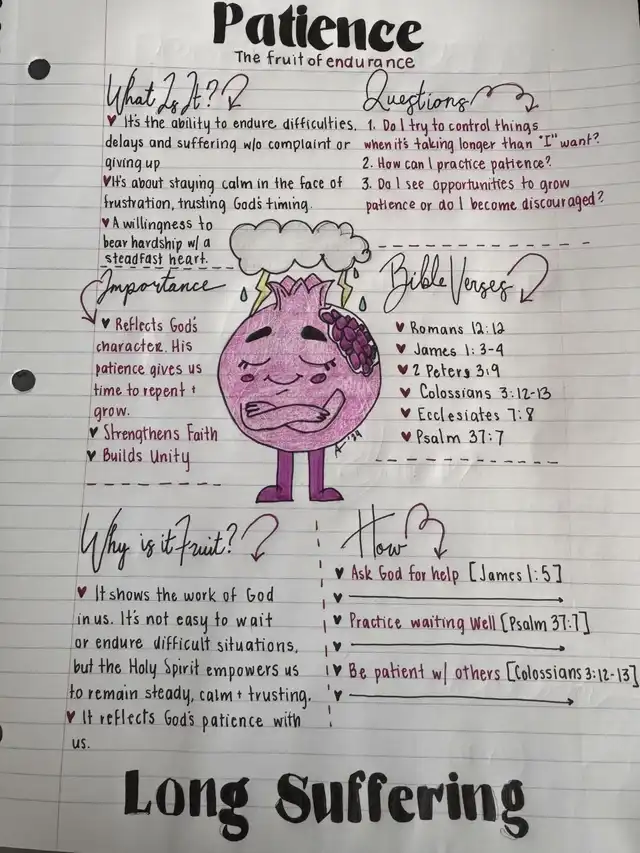 Patience
The fruit of endurance
What Is It?
♥ It's the ability to endure difficulties,
delays and suffering w/o complaint or
giving up
♥ It's about staying calm in the face of
frustration, trusting God's timing.
♥ A willingness to
bear hardship w/ a
steadfast heart.
Questions
1. Do I try to control things
when it's taking longer than "I" want?
2. How can I practice patience?
3. Do I see opportunities to grow
patience or do I become discouraged?
Importance
♥ Reflects God's
character. His
patience gives us
time to repent +
grow.
♥ Strengthens Faith
♥ Builds Unity
Bible Verses
♥ Romans 12:12
♥ James 1:3-4
♥ 2 Peters 3:9
♥ Colossians 3:12-13
♥ Ecclesiates 7:8
♥ Psalm 37:7
Why is it Fruit?
♥ It shows the work of God
in us. It's not easy to wait
or endure difficult situations,
but the Holy Spirit empowers us
to remain steady, calm + trusting.
♥ It reflects God's patience with
us.
How
♥ Ask God for help [James 1:5]
♥
♥ Practice waiting Well [Psalm 37:7]
♥
♥ Be patient w/ others [Colossians 3:12-13]
♥
Long Suffering